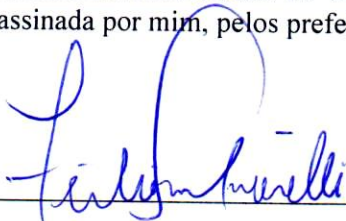 assinada por mim, pelos prefe